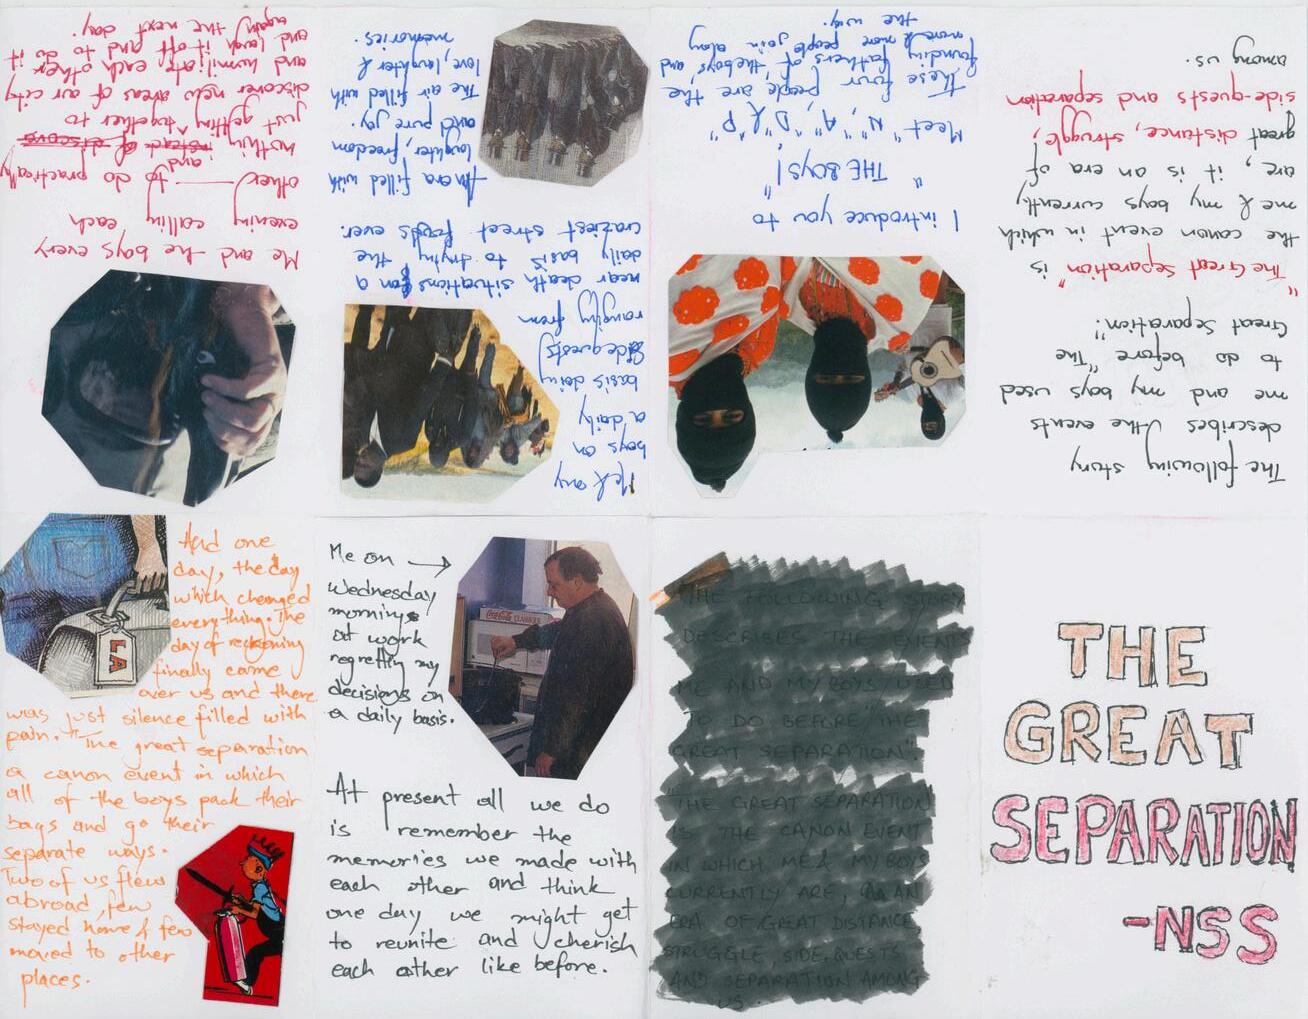 THE
GREAT
SEPARATION
-NSS
The following story
describes the events
me and my boys used
to do before "The
Great Separation".
"The Great Separation" is
the canon event in which
me & my boys currently
are, it is an era of
great distance, struggle,
side-quests and separation
among us.
I introduce you to
" THE BOYS!"
Meet "N", "A", "D" & "P"
These four people are the
founding fathers of 'the boys' and
more & more people join along
the way.
Me & my
boys on
a daily
basis doing
Sidequests
ranging from
near death situations on a
daily basis to trying the
craziest street foods ever.
An era filled with
laughter, freedom
and pure joy.
The air filled with
love, laughter &
memories.
Me and the boys every
evening calling each
other to do practically
nothing instead of and
just getting together to
discover new areas of our city
and humiliate each other
and laugh it off and to do it
again the next day.
And one
day, the day
which changed
everything. The
day of reckoning
finally came
over us and there
was just silence filled with
pain. The great separation
a canon event in which
all of the boys pack their
bags and go their
separate ways.
Two of us flew
abroad, few
stayed home & few
moved to other
places.
LA
Me on →
Wednesday
mornings
at work
regretting my
decisions on
a daily basis.
Coca-Cola CLASSIC
At present all we do
is remember the
memories we made with
each other and think
one day we might get
to reunite and cherish
each other like before.
THE FOLLOWING STORY
DESCRIBES THE EVENTS
ME AND MY BOYS USED
TO DO BEFORE "THE
GREAT SEPARATION".
"THE GREAT SEPARATION
IS THE CANON EVENT
IN WHICH ME & MY BOYS
CURRENTLY ARE, AN
ERA OF GREAT DISTANCE,
STRUGGLE, SIDE QUESTS
AND SEPARATION AMONG
US.